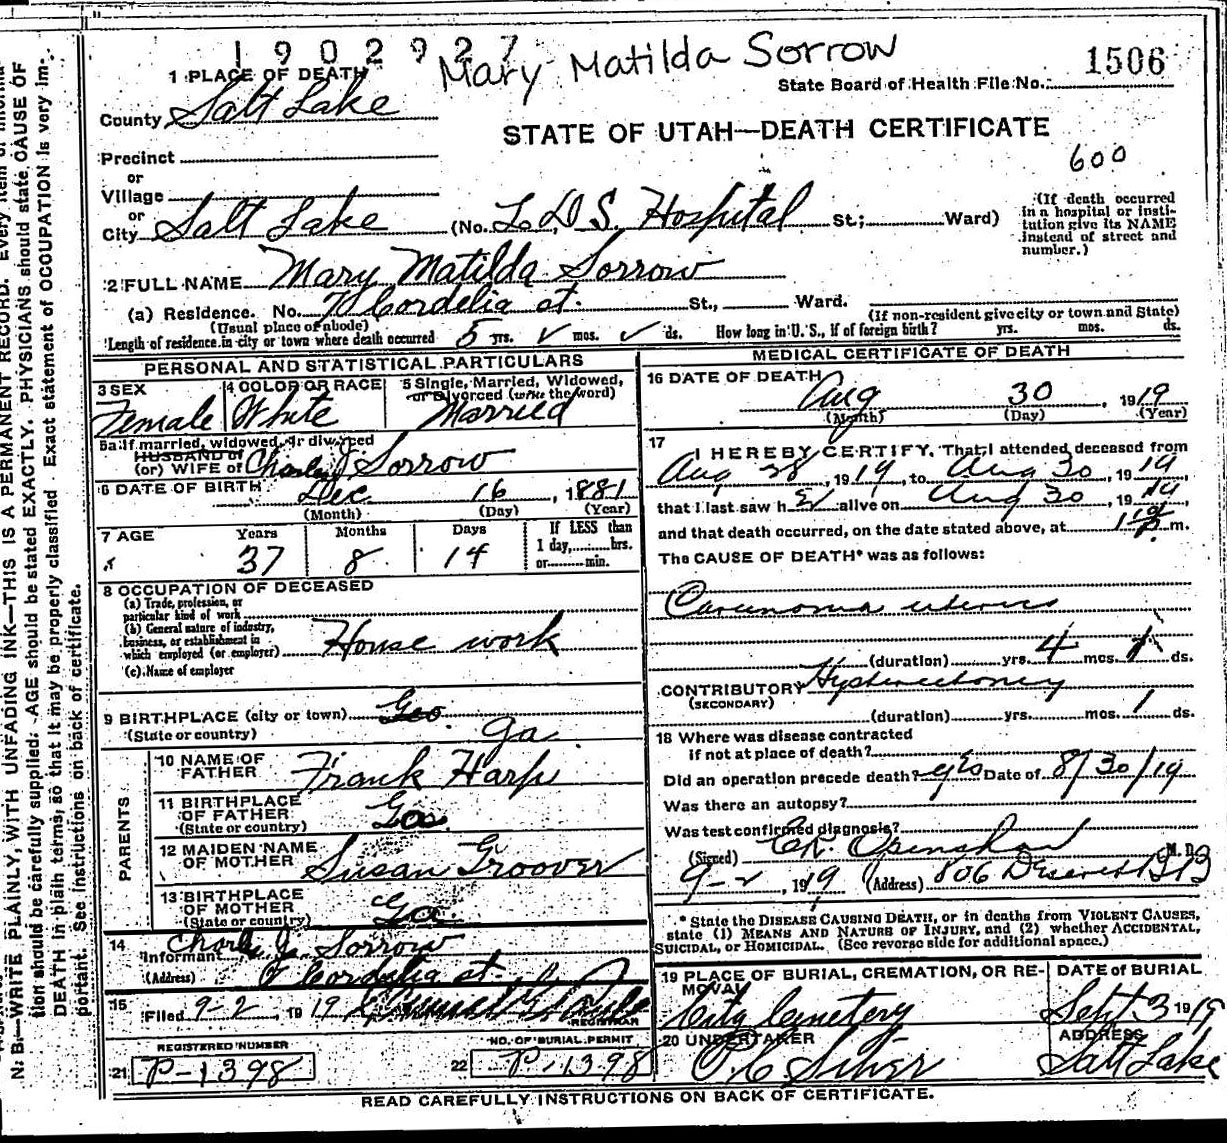 1902927
Mary Matilda Sorrow
1506
State Board of Health File No.
1 PLACE OF DEATH
County Salt Lake
STATE OF UTAH—DEATH CERTIFICATE
600
Precinct
or
Village
or
City Salt Lake (No. L.D.S. Hospital St.; Ward)
(If death occurred in a hospital or insti-
tution give its NAME
instead of street and
number.)
2 FULL NAME Mary Matilda Sorrow
(a) Residence. No. Cordelia st. St., Ward.
(Usual place of abode)
(If non-resident give city or town and State)
Length of residence in city or town where death occurred 5 yrs. ✓ mos. ✓ ds. How long in U. S., if of foreign birth? yrs. mos. ds.
PERSONAL AND STATISTICAL PARTICULARS
3 SEX
Female
4 COLOR OR RACE
White
5 Single, Married, Widowed,
or Divorced (write the word)
Married
5a If married, widowed, or divorced
HUSBAND of
(or) WIFE of Charley J Sorrow
6 DATE OF BIRTH Dec 16, 1881
(Month) (Day) (Year)
7 AGE Years Months Days If LESS than
1 day, hrs.
or min.
37 8 14
8 OCCUPATION OF DECEASED
(a) Trade, profession, or
particular kind of work
(b) General nature of industry,
business, or establishment in
which employed (or employer) House work
(c) Name of employer
9 BIRTHPLACE (city or town) Geo.
(State or country) Ga
PARENTS
10 NAME OF
FATHER Frank Harp
11 BIRTHPLACE
OF FATHER
(State or country)
12 MAIDEN NAME
OF MOTHER Susan Groover
13 BIRTHPLACE
OF MOTHER
(State or country) Ga.
14
Informant Charley J. Sorrow
(Address) Cordelia st
15
Filed 9-2, 1919
REGISTRAR
REGISTERED NUMBER
21 P-1398
NO. OF BURIAL PERMIT
22 P-1398
MEDICAL CERTIFICATE OF DEATH
16 DATE OF DEATH
Aug 30, 1919
(Month) (Day) (Year)
17
I HEREBY CERTIFY, That I attended deceased from
Aug 28, 1919, to Aug 30, 1919
that I last saw h er alive on Aug 30, 1919
and that death occurred, on the date stated above, at m.
The CAUSE OF DEATH* was as follows:
Carcinoma uterus
(duration) yrs. 4 mos. ds.
CONTRIBUTORY Hysterectomy
(SECONDARY)
(duration) yrs. mos. 1 ds.
18 Where was disease contracted
if not at place of death?
Did an operation precede death? yes Date of 8/30/19
Was there an autopsy?
Was test confirmed diagnosis?
(Signed) M. D.
9-2, 1919 (Address) 806 Deseret
* State the DISEASE CAUSING DEATH, or in deaths from VIOLENT CAUSES,
state (1) MEANS AND NATURE OF INJURY, and (2) whether ACCIDENTAL,
SUICIDAL, or HOMICIDAL. (See reverse side for additional space.)
19 PLACE OF BURIAL, CREMATION, OR RE-
MOVAL
City Cemetery
DATE OF BURIAL
Sept 3 1919
20 UNDERTAKER
ADDRESS
Salt Lake
READ CAREFULLY INSTRUCTIONS ON BACK OF CERTIFICATE.
N. B.—WRITE PLAINLY, WITH UNFADING INK—THIS IS A PERMANENT RECORD. Every item of informa-
tion should be carefully supplied. AGE should be stated EXACTLY. PHYSICIANS should state CAUSE OF
DEATH in plain terms, so that it may be properly classified. Exact statement of OCCUPATION is very im-
portant. See instructions on back of certificate.